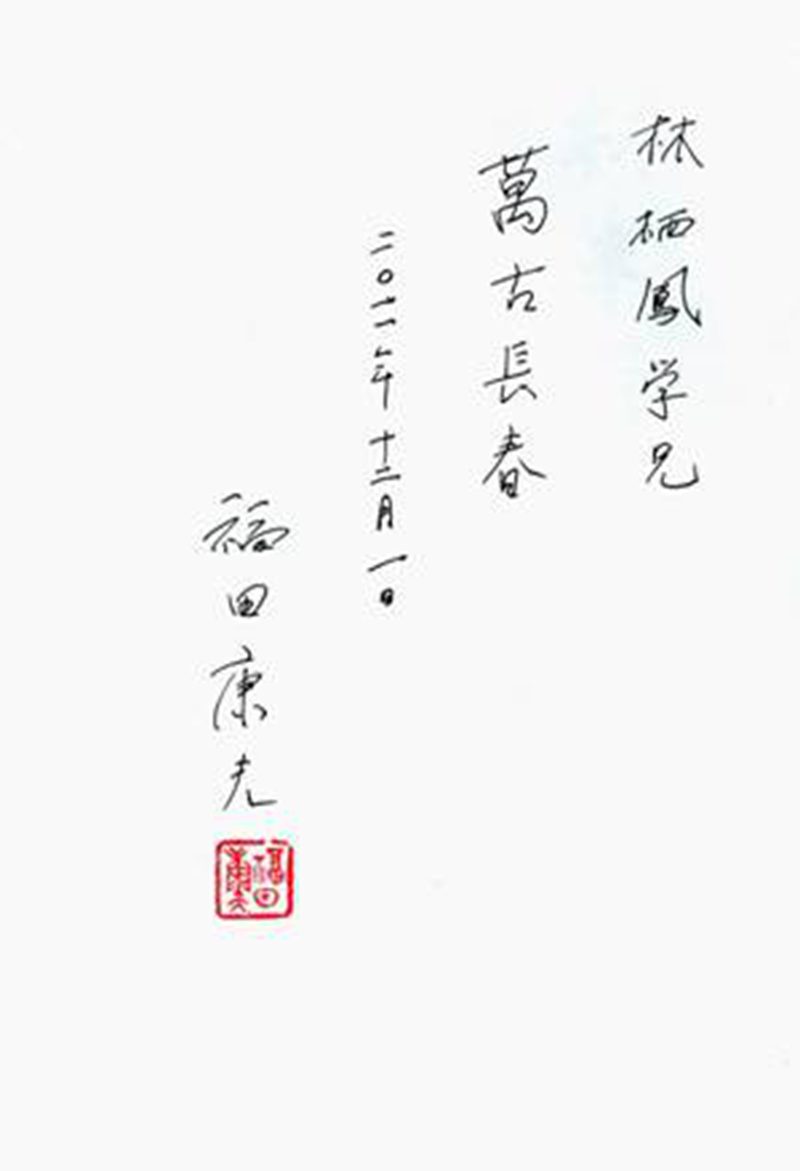 林栖鳳学兄
萬古長春
二〇一一年十二月一日
福田康夫
福田康夫